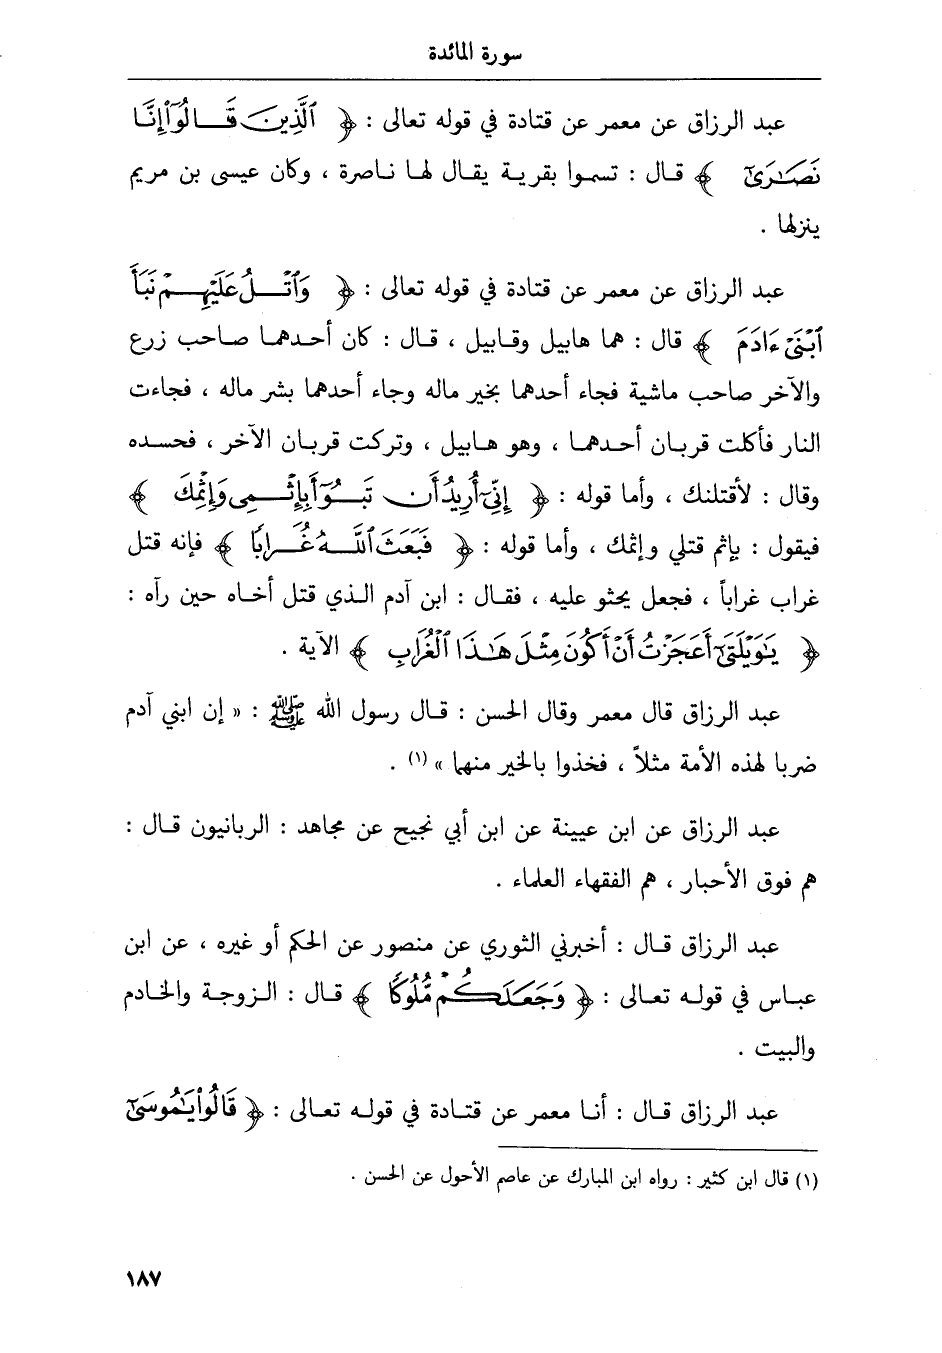 سورة المائدة
عبد الرزاق عن معمر عن قتادة في قوله تعالى : ﴿ ٱلَّذِينَ قَالُوٓا۟ إِنَّا
نَصَـٰرَىٰٓ ﴾ قال : تسموا بقرية يقال لها ناصرة ، وكان عيسى بن مريم
ينزلها .
عبد الرزاق عن معمر عن قتادة في قوله تعالى : ﴿ وَٱتْلُ عَلَيْهِمْ نَبَأَ
ٱبْنَىْ ءَادَمَ ﴾ قال : هما هابيل وقابيل ، قال : كان أحدهما صاحب زرع
والآخر صاحب ماشية فجاء أحدهما بخير ماله وجاء أحدهما بشر ماله ، فجاءت
النار فأكلت قربان أحدهما ، وهو هابيل ، وتركت قربان الآخر ، فحسده
وقال : لأقتلنك ، وأما قوله : ﴿ إِنِّىٓ أُرِيدُ أَن تَبُوٓأَ بِإِثْمِى وَإِثْمِكَ ﴾
فيقول : بإثم قتلي وإثمك ، وأما قوله : ﴿ فَبَعَثَ ٱللَّهُ غُرَابًا ﴾ فإنه قتل
غراب غراباً ، فجعل يحثو عليه ، فقال : ابن آدم الذي قتل أخاه حين رآه :
﴿ يَـٰوَيْلَتَىٰٓ أَعَجَزْتُ أَنْ أَكُونَ مِثْلَ هَـٰذَا ٱلْغُرَابِ ﴾ الآية .
عبد الرزاق قال معمر وقال الحسن : قال رسول الله ﷺ : « إن ابني آدم
ضربا لهذه الأمة مثلاً ، فخذوا بالخير منهما » (١) .
عبد الرزاق عن ابن عيينة عن ابن أبي نجيح عن مجاهد : الربانيون قال :
هم فوق الأحبار ، هم الفقهاء العلماء .
عبد الرزاق قال : أخبرني الثوري عن منصور عن الحكم أو غيره ، عن ابن
عباس في قوله تعالى : ﴿ وَجَعَلَكُم مُّلُوكًا ﴾ قال : الزوجة والخادم
والبيت .
عبد الرزاق قال : أنا معمر عن قتادة في قوله تعالى : ﴿ قَالُوا۟ يَـٰمُوسَىٰٓ
(١) قال ابن كثير : رواه ابن المبارك عن عاصم الأحول عن الحسن .
١٨٧